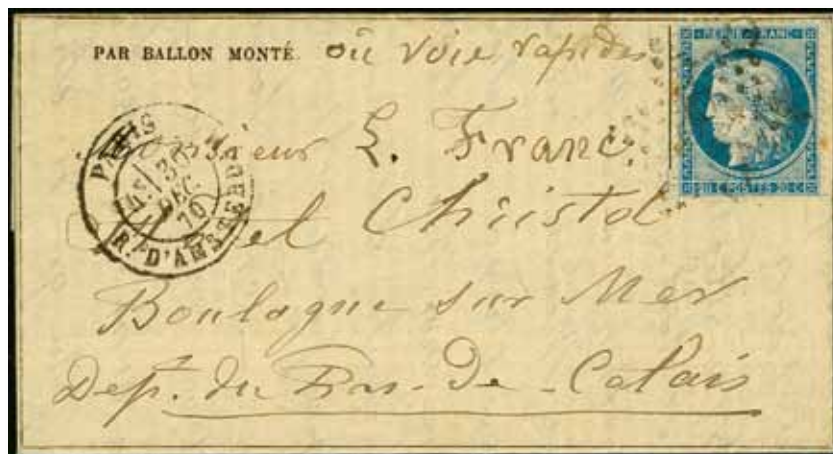 PAR BALLON MONTÉ. où voie rapide
REPUB. FRANC.
20 C POSTES 20 C
PARIS
DEC.
70
R. D'AMSTERDAM
Monsieur L. Franc.
Hotel Christol
Boulogne sur Mer
Dep. du Pas-de-Calais